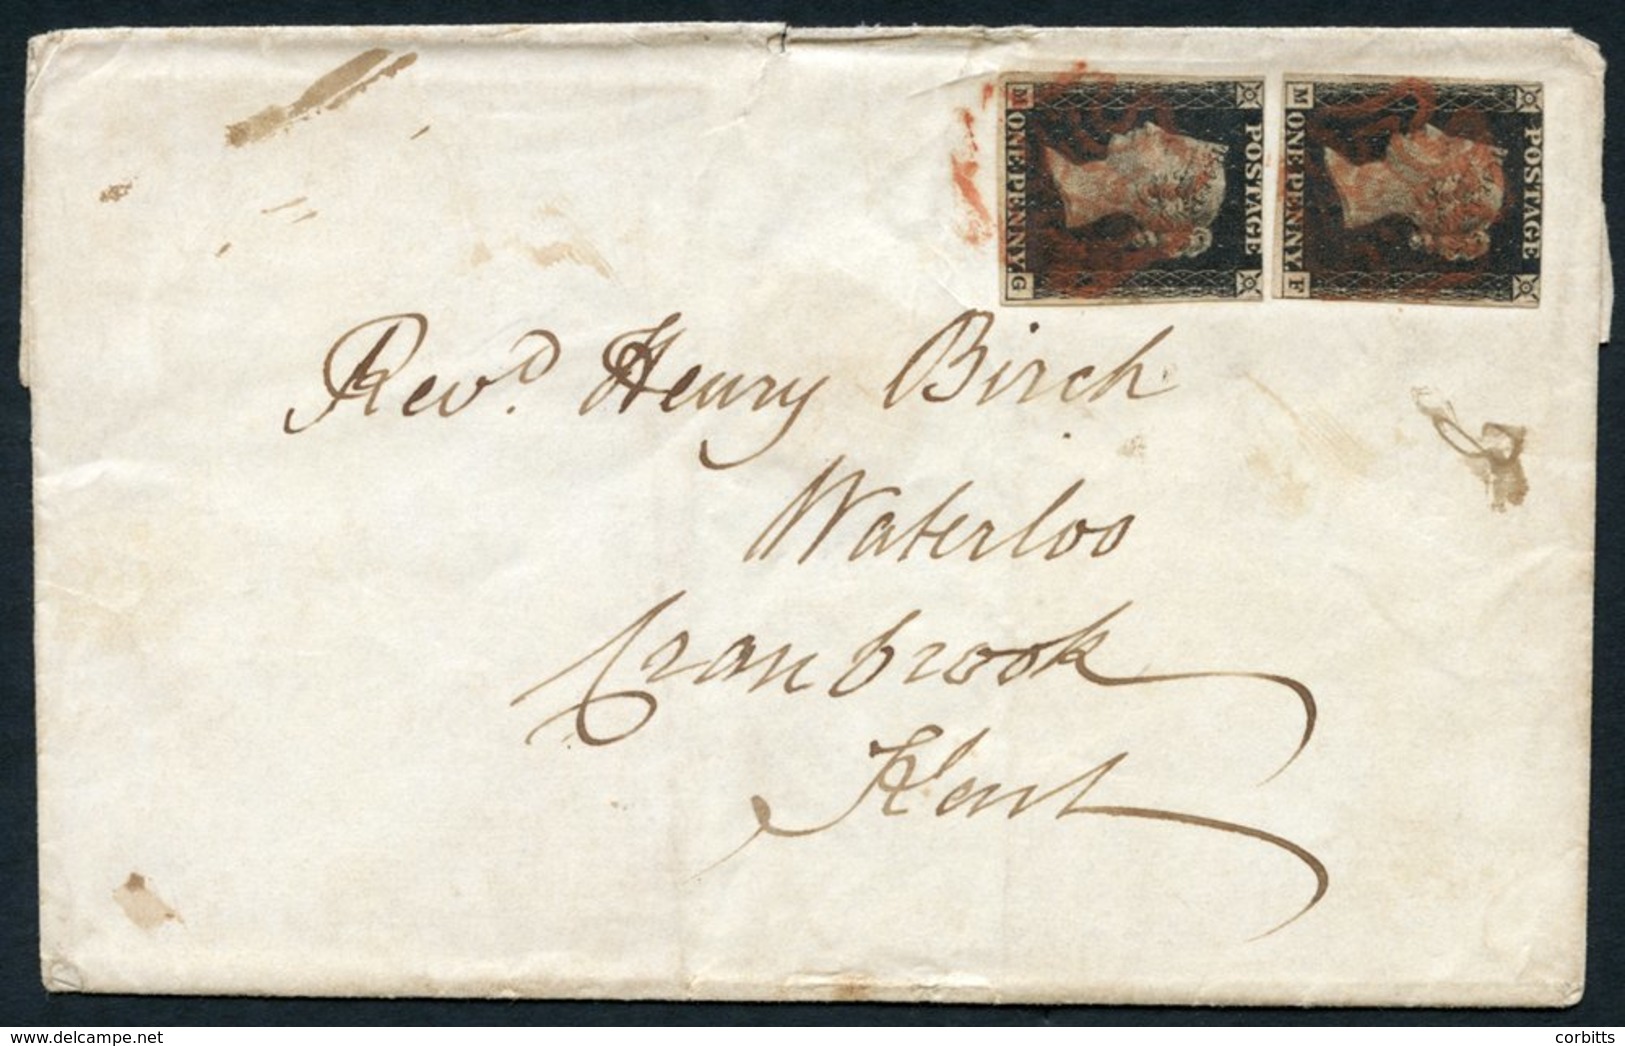 POSTAGE
ONE PENNY.
M G
POSTAGE
ONE PENNY.
M F
Revd. Henry Birch
Waterloo
Cranbrook
Kent
delcampe.net
corbitts